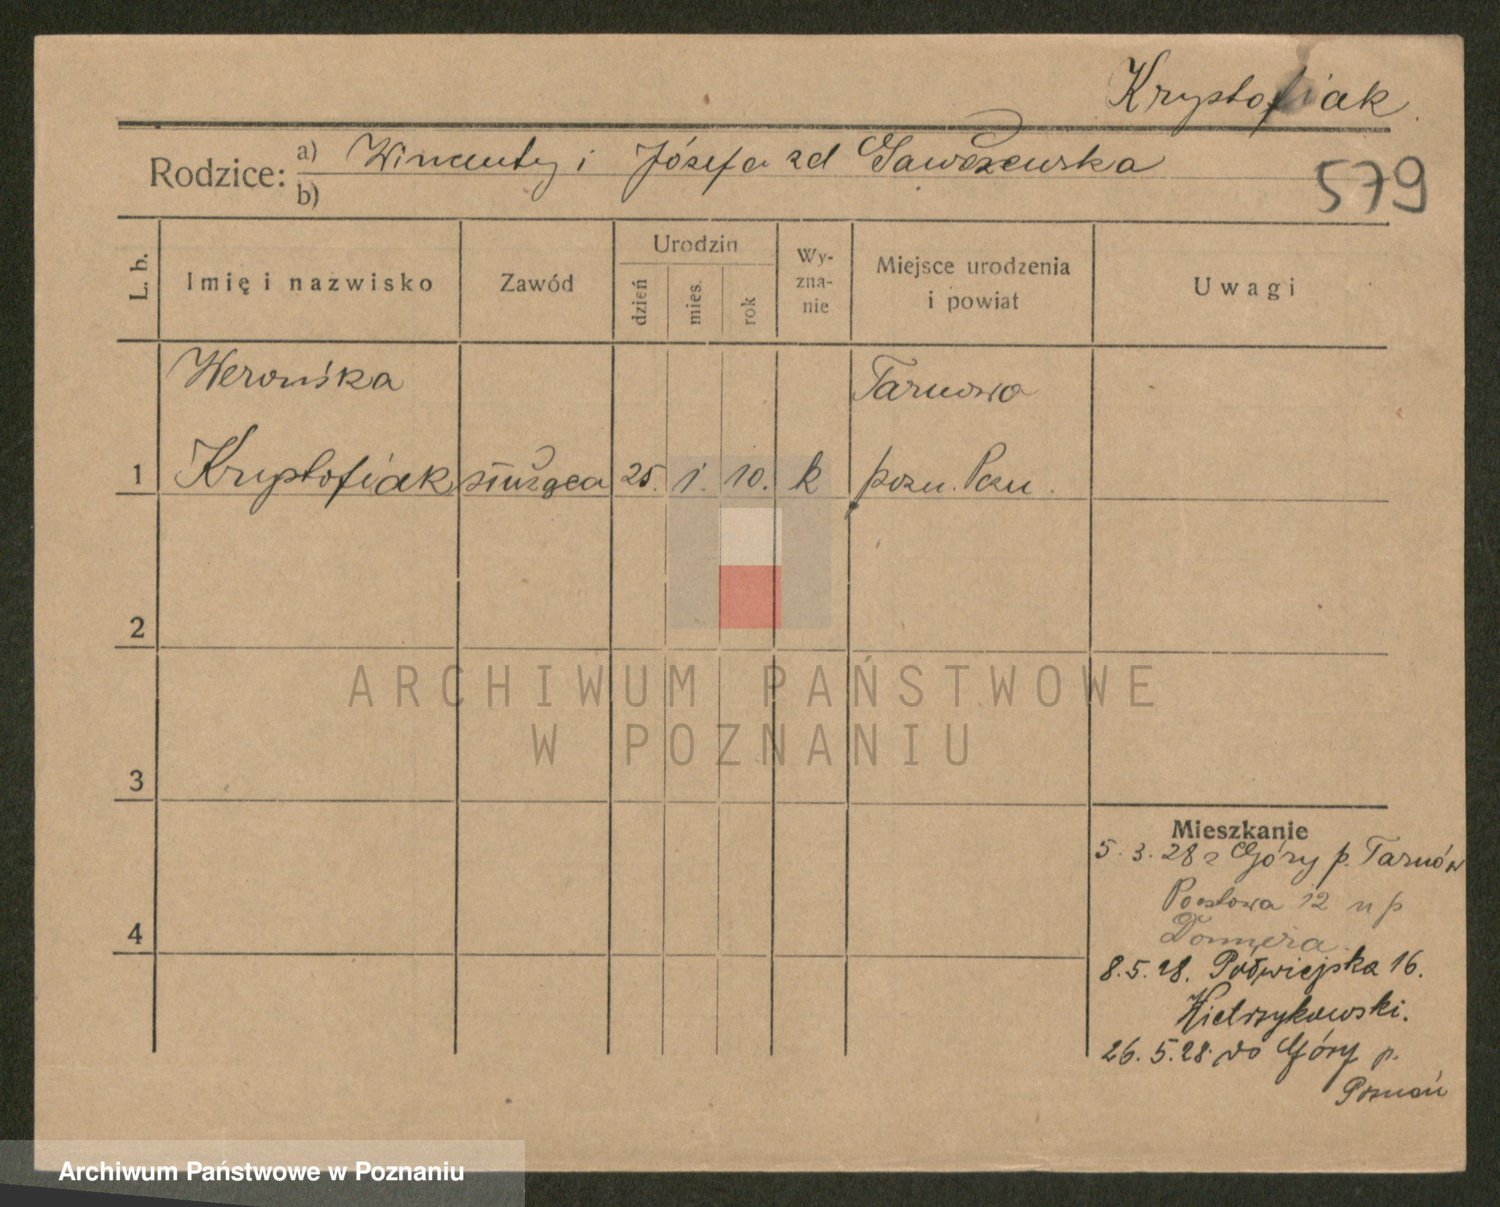 Krystofiak
Rodzice: a) Wincenty i Józefa zd
b)
579
L. b.
Imię i nazwisko
Zawód
Urodzin
dzień
mies.
rok
Wy-
zna-
nie
Miejsce urodzenia
i powiat
Uwagi
Werońka
Tarnowo
1 Krystofiak służąca 25. 1. 10. k pozn. Pozn.
2
ARCHIWUM PAŃSTWOWE
W POZNANIU
3
Mieszkanie
5. 3. 28 z Góry p. Tarnów
Pocztowa 12 u p
4
8. 5. 28. Półwiejska 16.
Wietrzykowski.
26. 5. 28. do Góry p.
Poznań
Archiwum Państwowe w Poznaniu